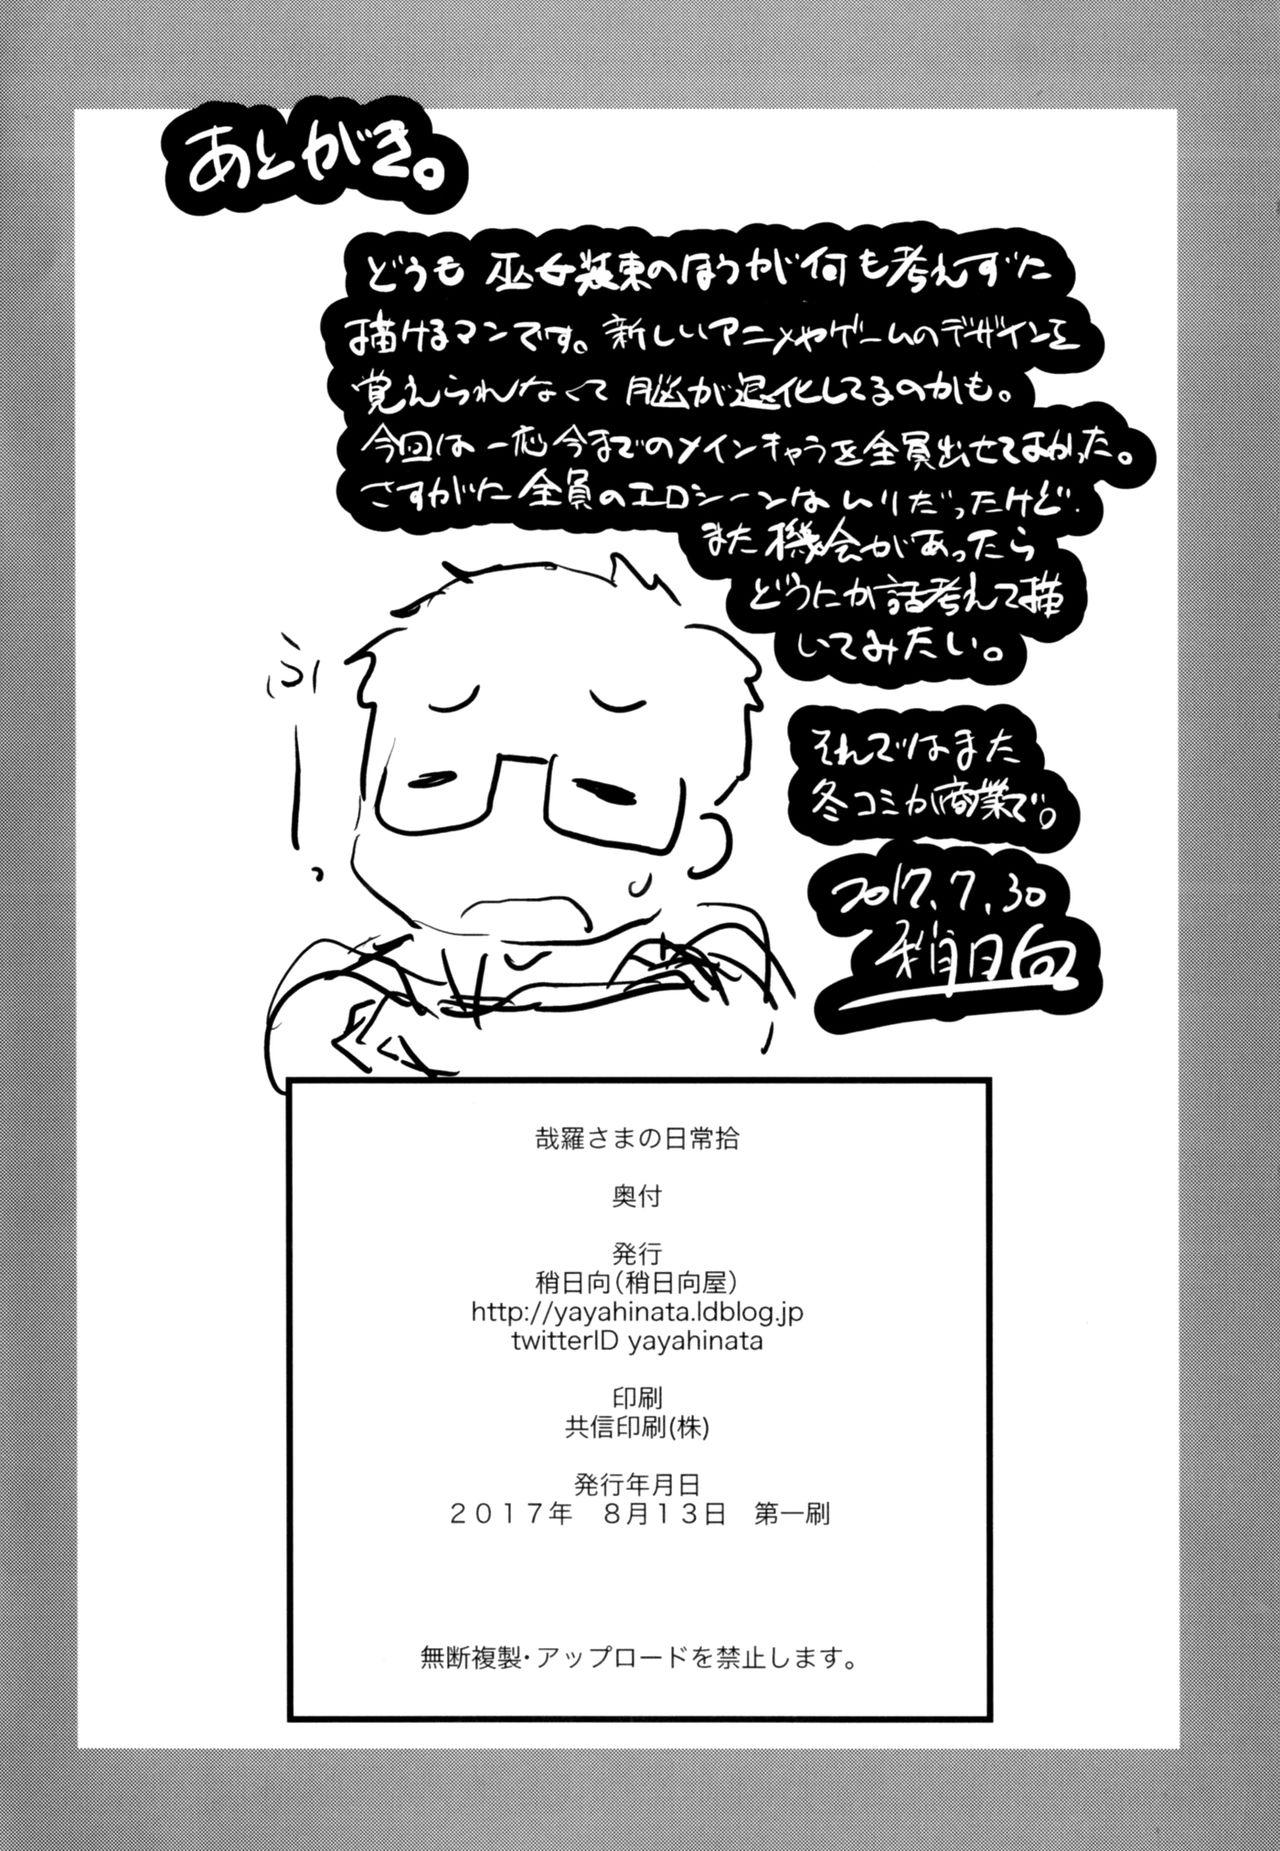 あとがき。
どうも 巫女装束のほうが何も考えずに
描けるマンです。新しいアニメやゲームのデザインを
覚えられなくて 脳が退化してるのかも。
今回は一応今までのメインキャラを全員出せてよかった。
さすがに全員のエロシーンはムリだったけど
また機会があったら
どうにか話考えて描
いてみたい。
ふぅ
それではまた
冬コミか商業で。
2017.7.30
稍日向
哉羅さまの日常拾
奥付
発行
稍日向（稍日向屋）
http://yayahinata.ldblog.jp
twitterID yayahinata
印刷
共信印刷(株)
発行年月日
２０１７年　８月１３日　第一刷
無断複製・アップロードを禁止します。